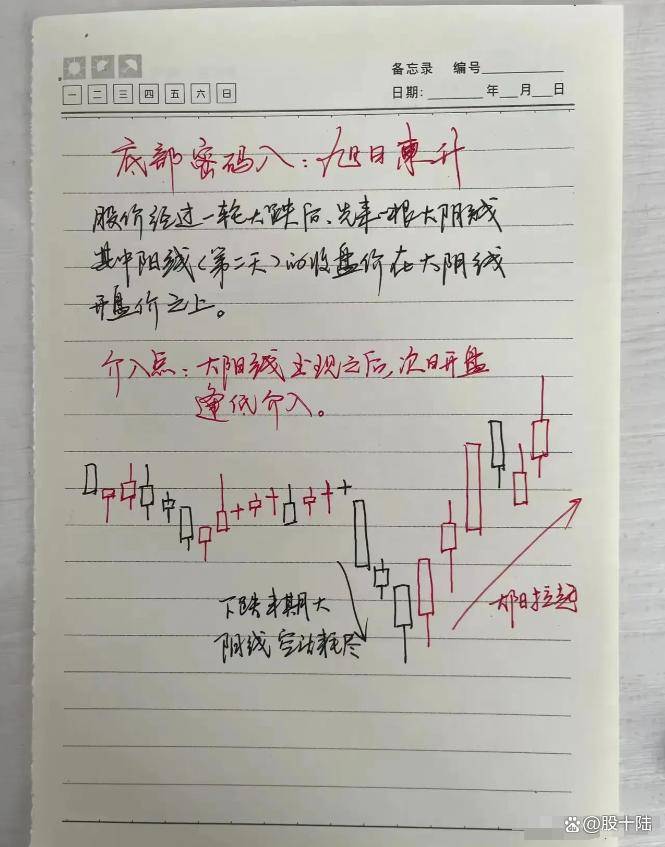 备忘录 编号
一 二 三 四 五 六 日
日期: 年 月 日
底部密码八：旭日東升
股价经过一轮大跌后、先来一根大阴线
其中阳线(第二天)的收盘价在大阴线
开盘价之上。
介入点：大阳线出现之后,次日开盘
逢低介入。
下跌末期大
阴线 耗尽
拉起
@股十陆